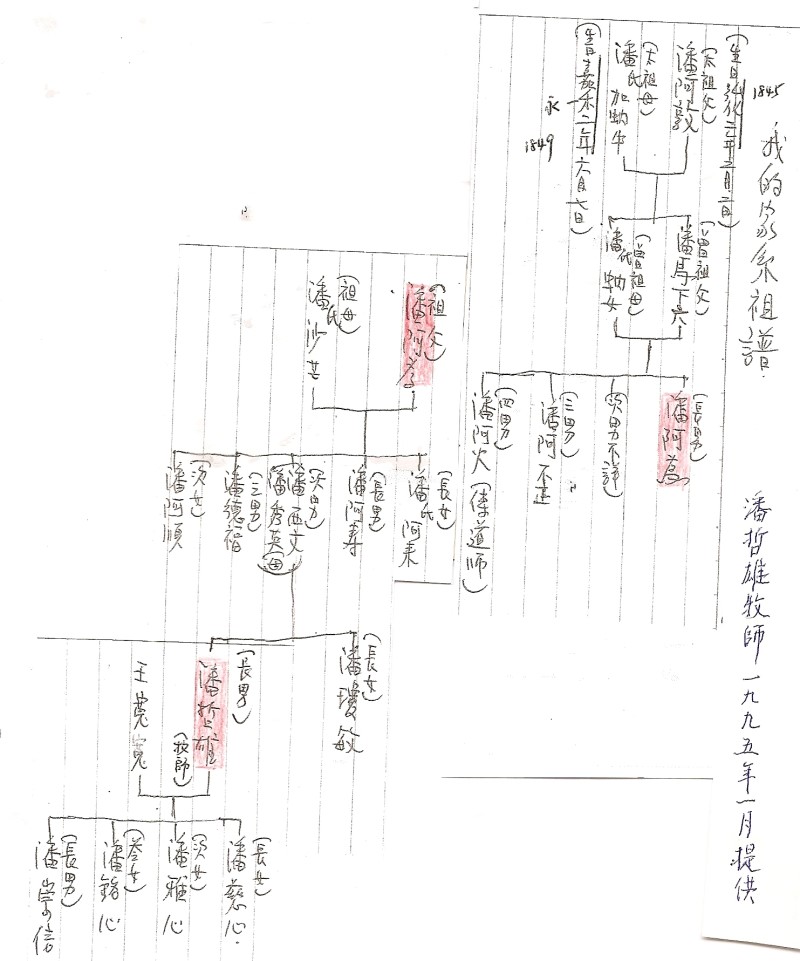 我的家系祖譜
1845
(生日弘化二年三月二日)
(太祖父)
潘阿敦
(太祖母)
潘氏加蚋牛
(生日嘉禾二年六月七日)
永
1849
(曾祖父)
潘馬下六
(曾祖母)
潘氏蚋女
(長男)
潘阿為
(次男不詳)
(三男)
潘阿不正
(四男)
潘阿火(傳道師)
潘哲雄牧師一九九五年一月提供
(祖父)
潘阿為
(祖母)
潘氏沙甘
(長女)
潘氏阿未
(長男)
潘阿寿
(次男)
潘西文
潘秀英(母)
(三男)
潘德福
(次女)
潘阿順
(長女)
潘瓊敏
(長男)
潘哲雄
(牧師)
王寬寬
(長女)
潘慈心
(次女)
潘雅心
(參女)
潘錦心
(長男)
潘崇信